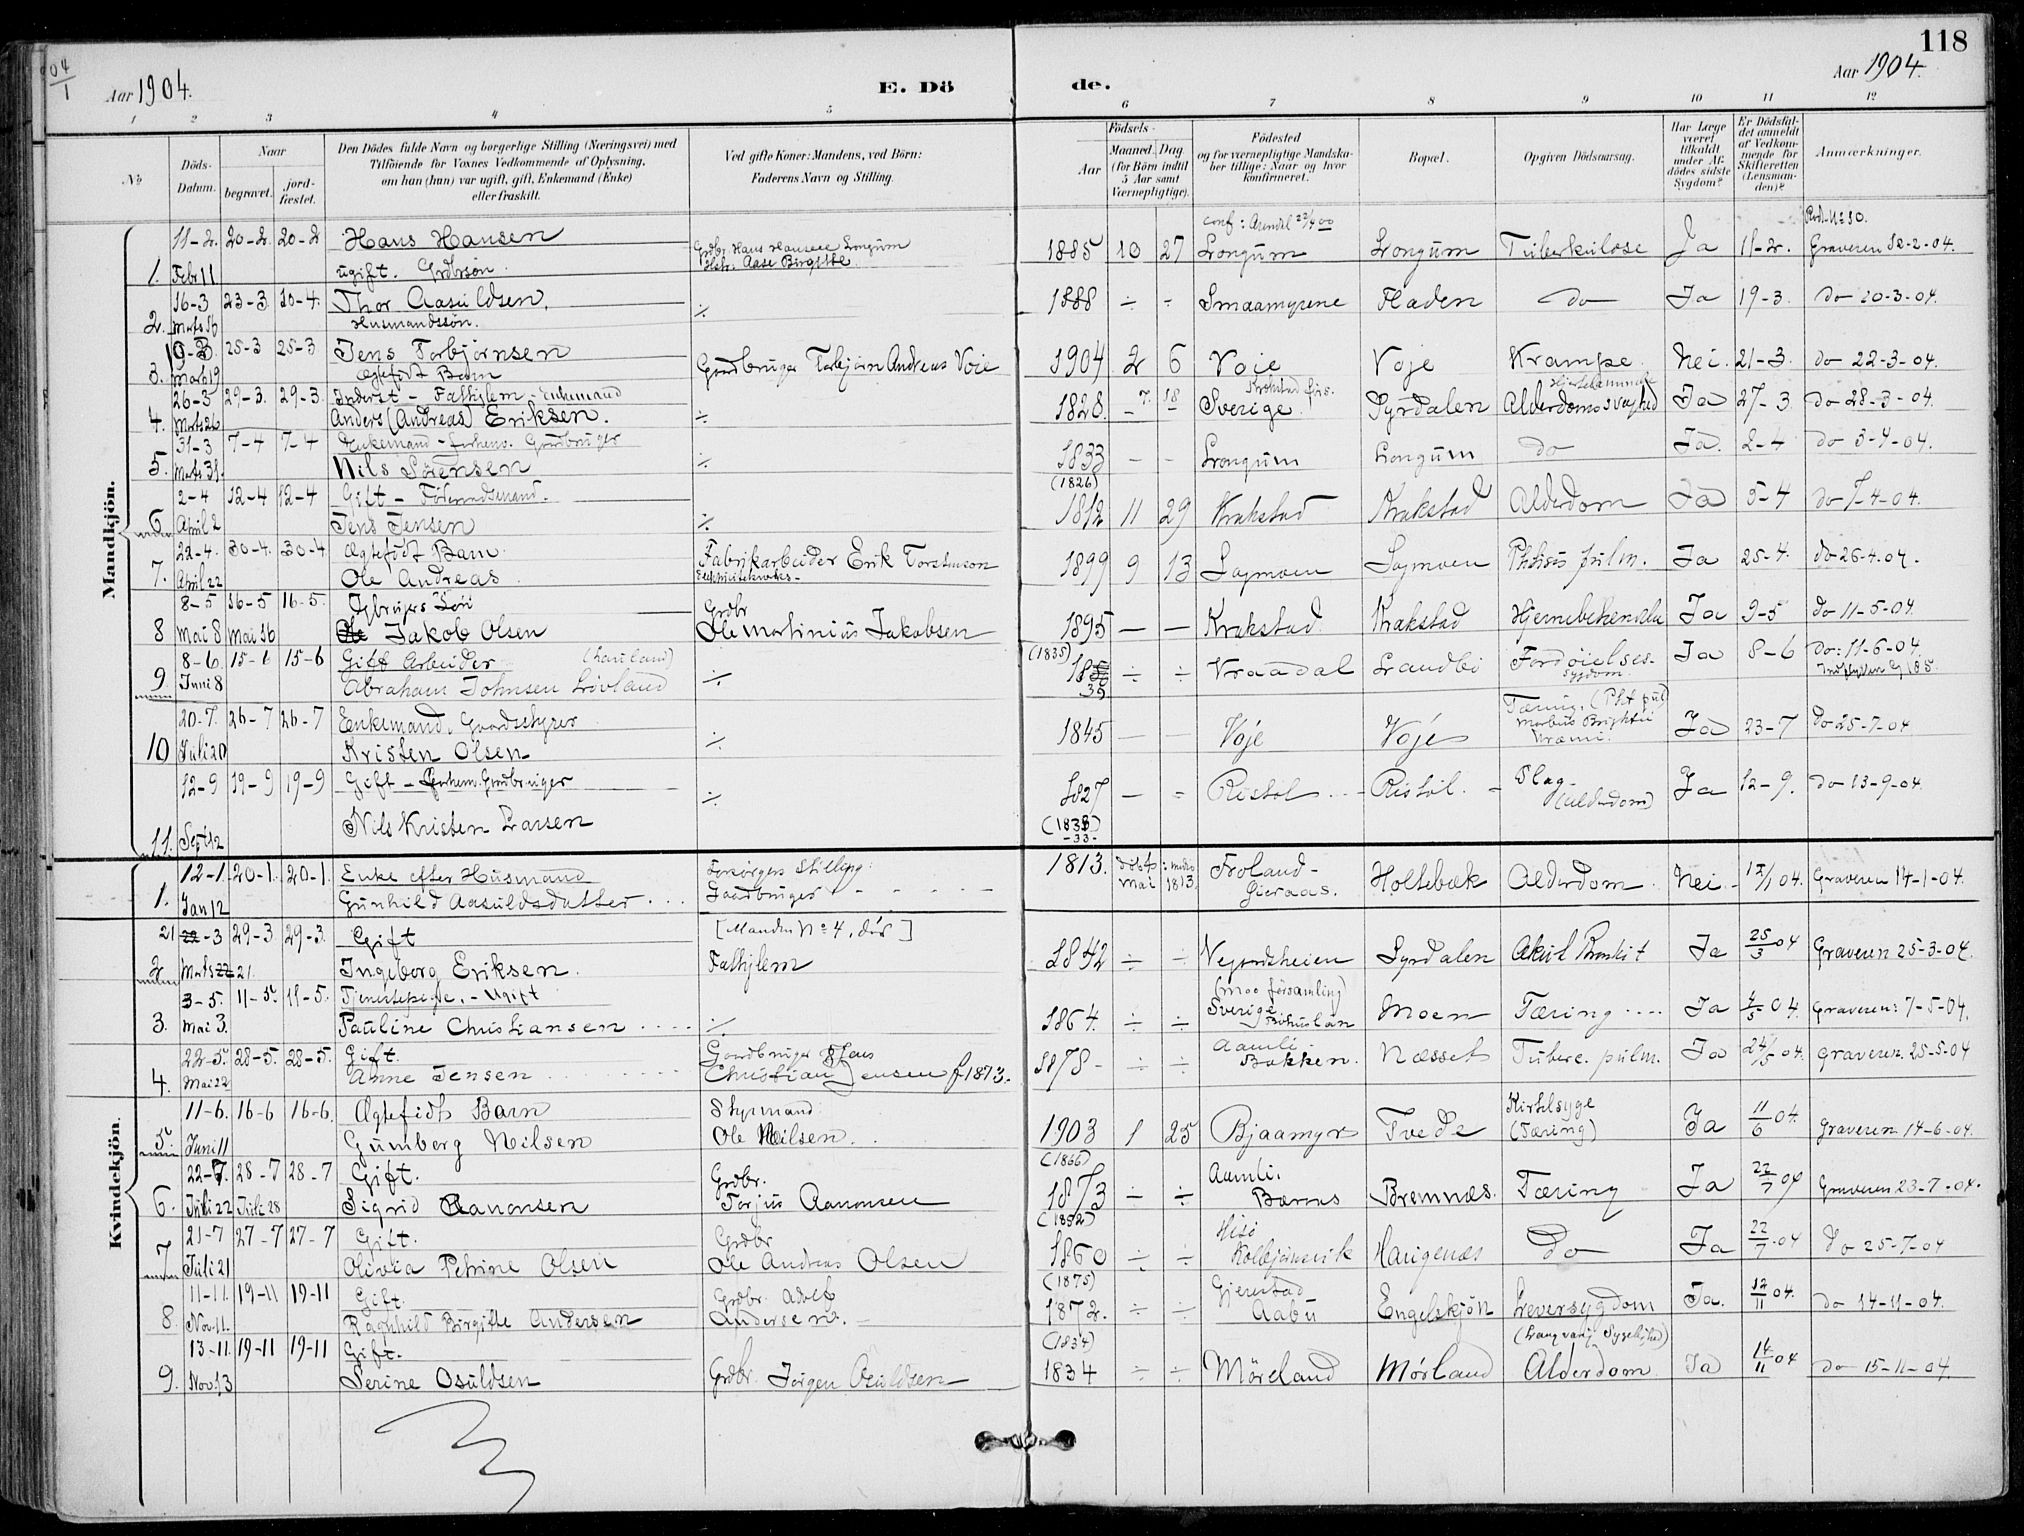 118
04/1
Aar 1904.
E. Dö
de.
Aar 1904.
1 2 3 4 5 6 7 8 9 10 11 12
No
Döds-Datum.
Naar
begravet.
jord-fæstet.
Den Dödes fulde Navn og borgerlige Stilling (Næringsvei) med
Tilföiende for Voxnes Vedkommende af Oplysning,
om han (hun) var ugift, gift, Enkemand (Enke)
eller fraskilt.
Ved gifte Koner: Mandens, ved Börn:
Faderens Navn og Stilling.
Födsels-
Aar
Maaned. Dag
(for Börn indtil
5 Aar samt
Værnepligtige).
Födested
og for værnepligtige Mandska-
ber tillige: Naar og hvor
konfirmeret.
Bopæl.
Opgiven Dödsaarsag.
Har Læge
været
tilkaldt
under Af-
dödes sidste
Sygdom?
Er Dödsfal-
det anmeldt
af Vedkom-
mende for
Skifteretten
(Lensman-
den)?
Anmærkninger.
Mandkjön.
11-2. 20-2. 20-2 Hans Hansen Grdbr. Hans Hansen Longum conf: Arendal 22/4 00
1. Febr 11 ugift. Grdbrsøn. Hstr. Aase Birgitte 1885 10 27 Longum Longum Tuberkulose Ja 11-2. Graveren 12-2-04.
16-3 23-3 10-4. Thor Aasuldsen. 1888 ÷ ÷ Smaamyrene Fladen do Ja 19-3. do 20-3-04.
2. Marts 16 Husmandssön. ÷
19-3. 25-3 25-3 Jens Torbjörnsen
3. Marts 19 Ægtefödt Barn Gaardbruger Torbjörn Andreas Voie 1904 2 6 Voie Voje Krampe. Nei. 21-3. do 22-3-04.
26-3 29-3. 29-3. Inderst - Fathjlem - Enkemand
4. Marts 26 Anders (Andreas) Eriksen. ÷ 1828. 7. 18 Sverige Syrdalen Alderdomssvaghed Ja 27-3 do 28-3-04.
31-3 7-4 7-4 Enkemand - forhens. Gaardbruger
5. Marts 31. Nils Sörensen ÷ 1833 (1826) - - Longum Longum do Ja. 2-4 do 3-4-04.
2-4 12-4 12-4 Gift - Föderaadsmand.
6 April 2 Jens Jensen ÷ 1812 11 29 Krakstad Krakstad Alderdom Ja 5-4 do 7-4-04.
22-4. 30-4. 30-4 Ægtefödt Barn. Fabrikarbeider Erik Torstenson
7. April 22 Ole Andreas. 1899 9 13 Løgmoen Løgmoen Phtisis pulm. Ja 25-4. do 26-4-04.
8-5 16-5 16-5. Gbrugers Sön Grdbr
8 Mai 8 Mai 16 Jakob Olsen Ole Martinius Jakobsen 1895 - - Krakstad Krakstad Ja 9-5 do 11-5-04.
8-6. 15-6 15-6 Gift Arbeider (Lauland)
9 Juni 8 Abraham Johnsen Lövland ÷ (1835) 39 ÷ ÷ Vraadal Landbö Fordöielses-sygdom. Ja 8-6 do: 11-6-04.
20-7. 26-7 26-7 Enkemand, Gaardsstyrer Tæring, (Pht pul)
10 Juli 20 Kristen Olsen ÷ 1845 - - Voje Voje Morbus Brightii Uræmi. Ja 23-7 do 25-7-04
12-9 19-9 19-9 Gift - forhen. Grdbruger
11. Sept 12 Nils Kristen Larsen ÷ 1827 (1833) -33- - - Ristöl Ristöl. Slag (Alderdom) Ja 12-9. do 13-9-04.
Kvindekjön.
12-1. 20-1. 20-1. Enke efter Husmand Forsörgers Stilling:
1. Jan 12 Gunhild Aasuldsdatter Gaardbruger 1813. döbt mai 1813. Froland-Gieraas. Holtebæk Alderdom Nei 12/1 04. Graveren 14-1-04.
21 -3 29-3 29-3. Gift [Manden No 4, dör]
2. Marts 22 21. Ingeborg Eriksen. Fathjlem 1842 ÷ ÷ Vegardsheien Syrdalen Akut Bronkit Ja 25/3 04 Graveren 25-3-04.
3-5. 11-5. 11-5. Tjenestepige. - Ugift (Moe forsamling)
3. Mai 3. Pauline Christiansen ÷ 1864. ÷ ÷ Sverige Bohuslän Moen Tæring Ja 4/5 04. Graveren: 7-5-04.
22-5. 28-5. 28-5. Gift. Gaardbruger Hans
4. Mai 22 Anne Jensen Christian Jensen f 1873. 1878- ÷ ÷ Aamli Bakken. Næsset Tuberc. pulm. Ja 24/5 04. Graveren 25-5-04
11-6. 16-6 16-6. Ægtefödt Barn Styrmand Kirtelsyge
5. Juni 11 Gunborg Nilsen Ole Nilsen. 1903 1 25 Bjaamyr Tvede (Tæring) Ja 11/6 04. Graveren 14-6-04.
22-7. 28-7 28-7 Gift. Grdbr.
6. Juli 22 Juli 28 Sigrid Aanonsen Torjus Aanonsen (1866) 1873 ÷ ÷ Aamli. Bærnes Bremnæs. Tæring Ja 22/7 04 Graveren 23-7-04.
21-7 27-7 27-7 Gift. Grdbr
7 Juli 21 Olivia Petrine Olsen Ole Andreas Olsen (1852) 1860 ÷ ÷ Hisö Kolbjörnsvik Haugenæs do Ja 22/7 04 do 25-7-04
11-11. 19-11 19-11 Gift. Grdbr. Adolf
8. Nov. 11. Ragnhild Birgitte Andersen Andersen. (1875) 1872. ÷ ÷ Gjerestad Aabu Engelskjön Leversygdom Ja. 12/11 04. do 14-11-04.
13-11. 19-11 19-11 Gift. (Langvarig Sygelighed)
9. Nov. 13 Serine Osuldsen Grdbr. Jörgen Osuldsen (1834) 1834 ÷ ÷ Möreland Mörland Alderdom Ja 14/11 04 do 15-11-04.